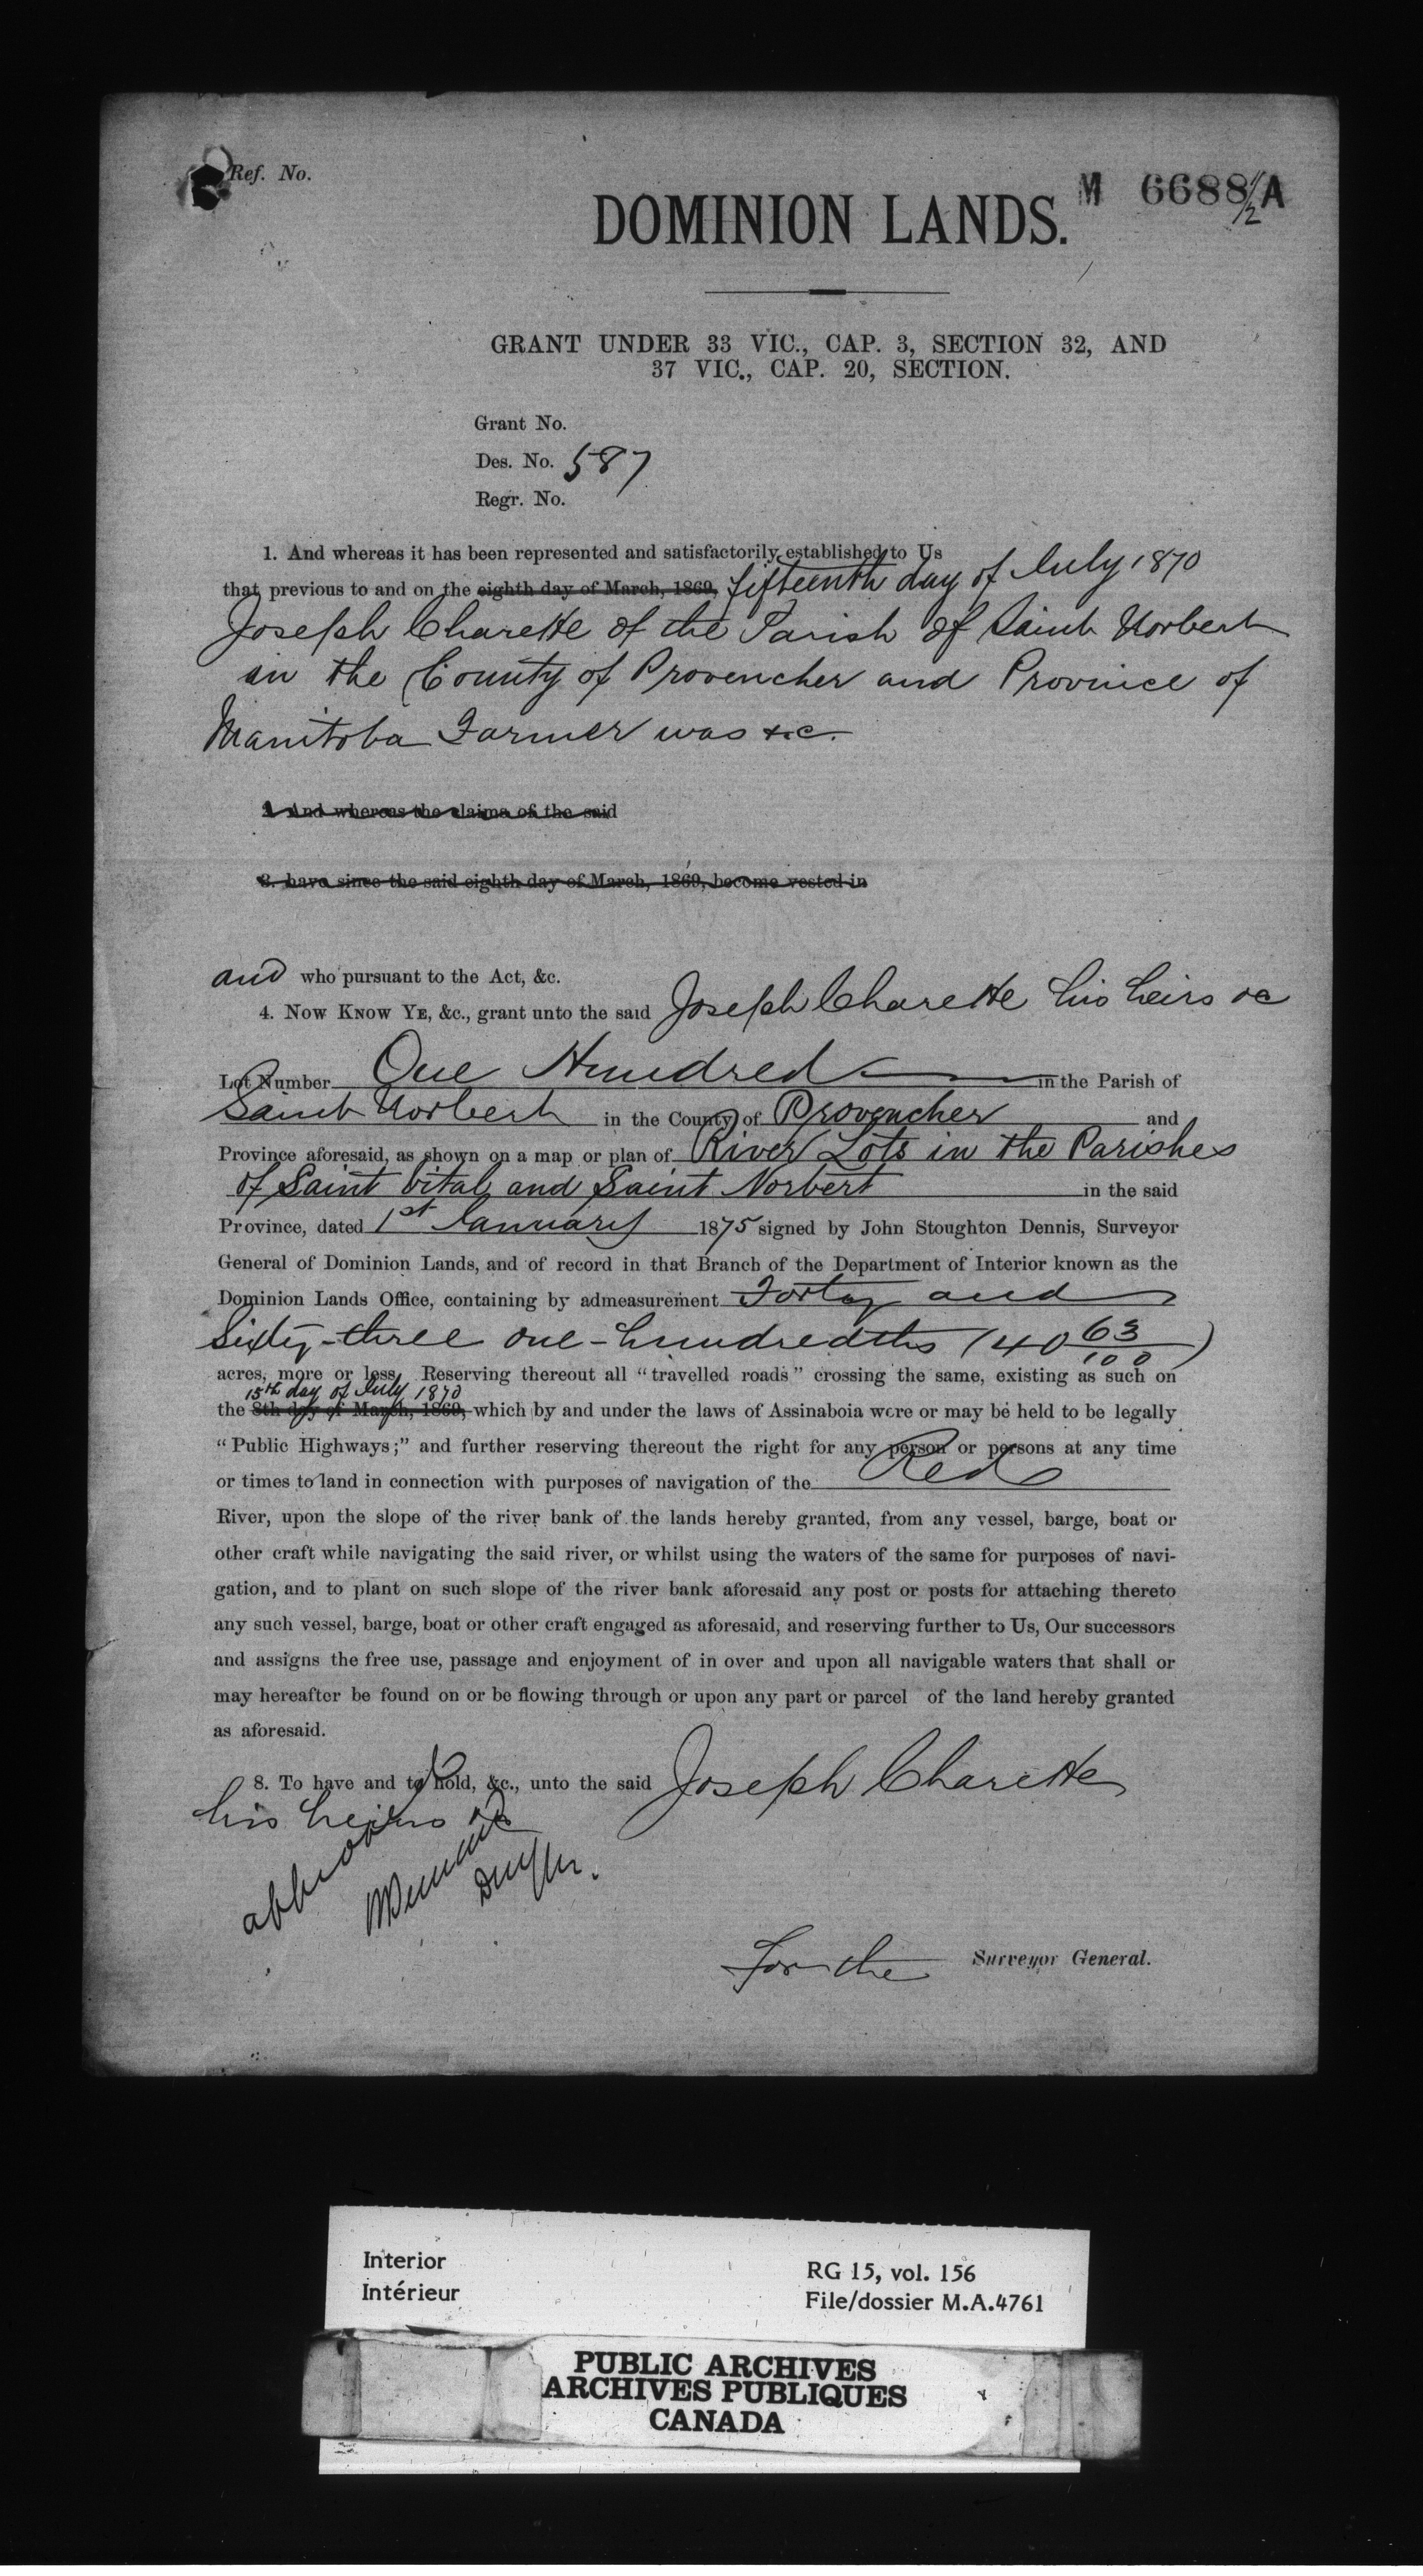 Ref. No.
M 6688 1/2 A
DOMINION LANDS.
GRANT UNDER 33 VIC., CAP. 3, SECTION 32, AND
37 VIC., CAP. 20, SECTION.
Grant No.
Des. No. 587
Regr. No.
1. And whereas it has been represented and satisfactorily established to Us
that previous to and on the eighth day of March, 1869, fifteenth day of July 1870
Joseph Charette of the Parish of Saint Norbert
in the County of Provencher and Province of
Manitoba Farmer was &c.
2. And whereas the claims of the said
3. have since the said eighth day of March, 1869, become vested in
and who pursuant to the Act, &c.
4. NOW KNOW YE, &c., grant unto the said Joseph Charette his heirs &c
Lot Number One Hundred in the Parish of
Saint Norbert in the County of Provencher and
Province aforesaid, as shown on a map or plan of River Lots in the Parishes
of Saint Vital and Saint Norbert in the said
Province, dated 1st January 1875 signed by John Stoughton Dennis, Surveyor
General of Dominion Lands, and of record in that Branch of the Department of Interior known as the
Dominion Lands Office, containing by admeasurement Forty and
Sixty-three one-hundredths (40 63/100)
acres, more or less. Reserving thereout all "travelled roads" crossing the same, existing as such on
15th day of July 1870
the 8th day of March, 1869, which by and under the laws of Assinaboia were or may be held to be legally
"Public Highways;" and further reserving thereout the right for any person or persons at any time
or times to land in connection with purposes of navigation of the Red
River, upon the slope of the river bank of the lands hereby granted, from any vessel, barge, boat or
other craft while navigating the said river, or whilst using the waters of the same for purposes of navi-
gation, and to plant on such slope of the river bank aforesaid any post or posts for attaching thereto
any such vessel, barge, boat or other craft engaged as aforesaid, and reserving further to Us, Our successors
and assigns the free use, passage and enjoyment of in over and upon all navigable waters that shall or
may hereafter be found on or be flowing through or upon any part or parcel of the land hereby granted
as aforesaid.
8. To have and to hold, &c., unto the said Joseph Charette
his heirs &c
For the Surveyor General.
Interior
Intérieur
RG 15, vol. 156
File/dossier M.A.4761
PUBLIC ARCHIVES
ARCHIVES PUBLIQUES
CANADA